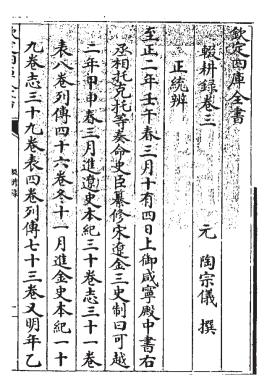 欽定四庫全書
輟耕錄卷三
元 陶宗儀 撰
正統辨
至正二年壬午春三月十有四日上御咸寧殿中書右
丞相托克托等奏命史臣纂修宋遼金三史制曰可越
二年甲申春三月進遼史本紀三十卷志三十一卷
表八卷列傳四十六卷冬十一月進金史本紀一十
九卷志三十九卷表四卷列傳七十三卷又明年乙